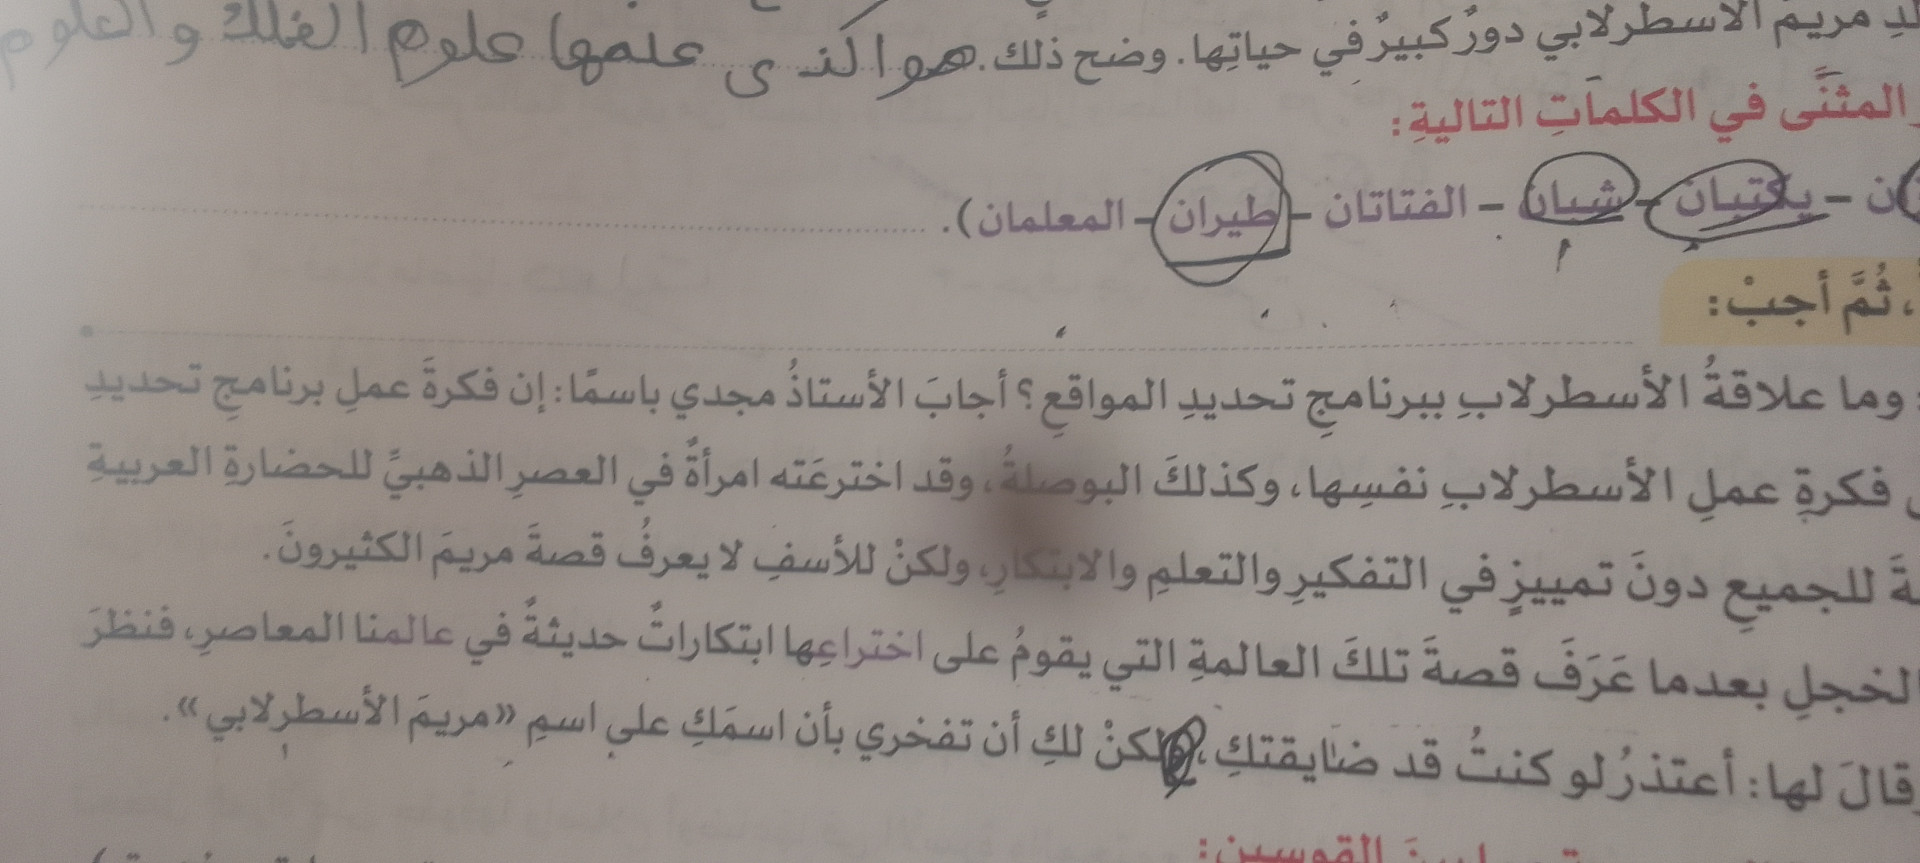 مريم الأسطرلابي دورٌ كبيرٌ في حياتِها. وضح ذلك. هو الذى علمها علوم الفلك والعلوم
المثنَّى في الكلماتِ التاليةِ:
يكتبان - شبان - الفتاتان - طيران - المعلمان).
، ثُمَّ أجبْ:
وما علاقةُ الأسطرلابِ ببرنامجِ تحديدِ المواقعِ؟ أجابَ الأستاذُ مجدي باسمًا: إن فكرةَ عملِ برنامجِ تحديدِ
فكرةِ عملِ الأسطرلابِ نفسِها، وكذلكَ البوصلةُ، وقد اخترعَته امرأةٌ في العصرِ الذهبيِّ للحضارةِ العربيةِ
للجميعِ دونَ تمييزٍ في التفكيرِ والتعلمِ والابتكارِ، ولكنْ للأسفِ لا يعرفُ قصةَ مريمَ الكثيرونَ.
الخجلِ بعدما عَرَفَ قصةَ تلكَ العالمةِ التي يقومُ على اختراعِها ابتكاراتٌ حديثةٌ في عالمنا المعاصرِ، فنظرَ
قالَ لها: أعتذرُ لو كنتُ قد ضايقتكِ، ولكنْ لكِ أن تفخري بأن اسمَكِ على اسمِ «مريمَ الأسطرلابي».
القوسين: